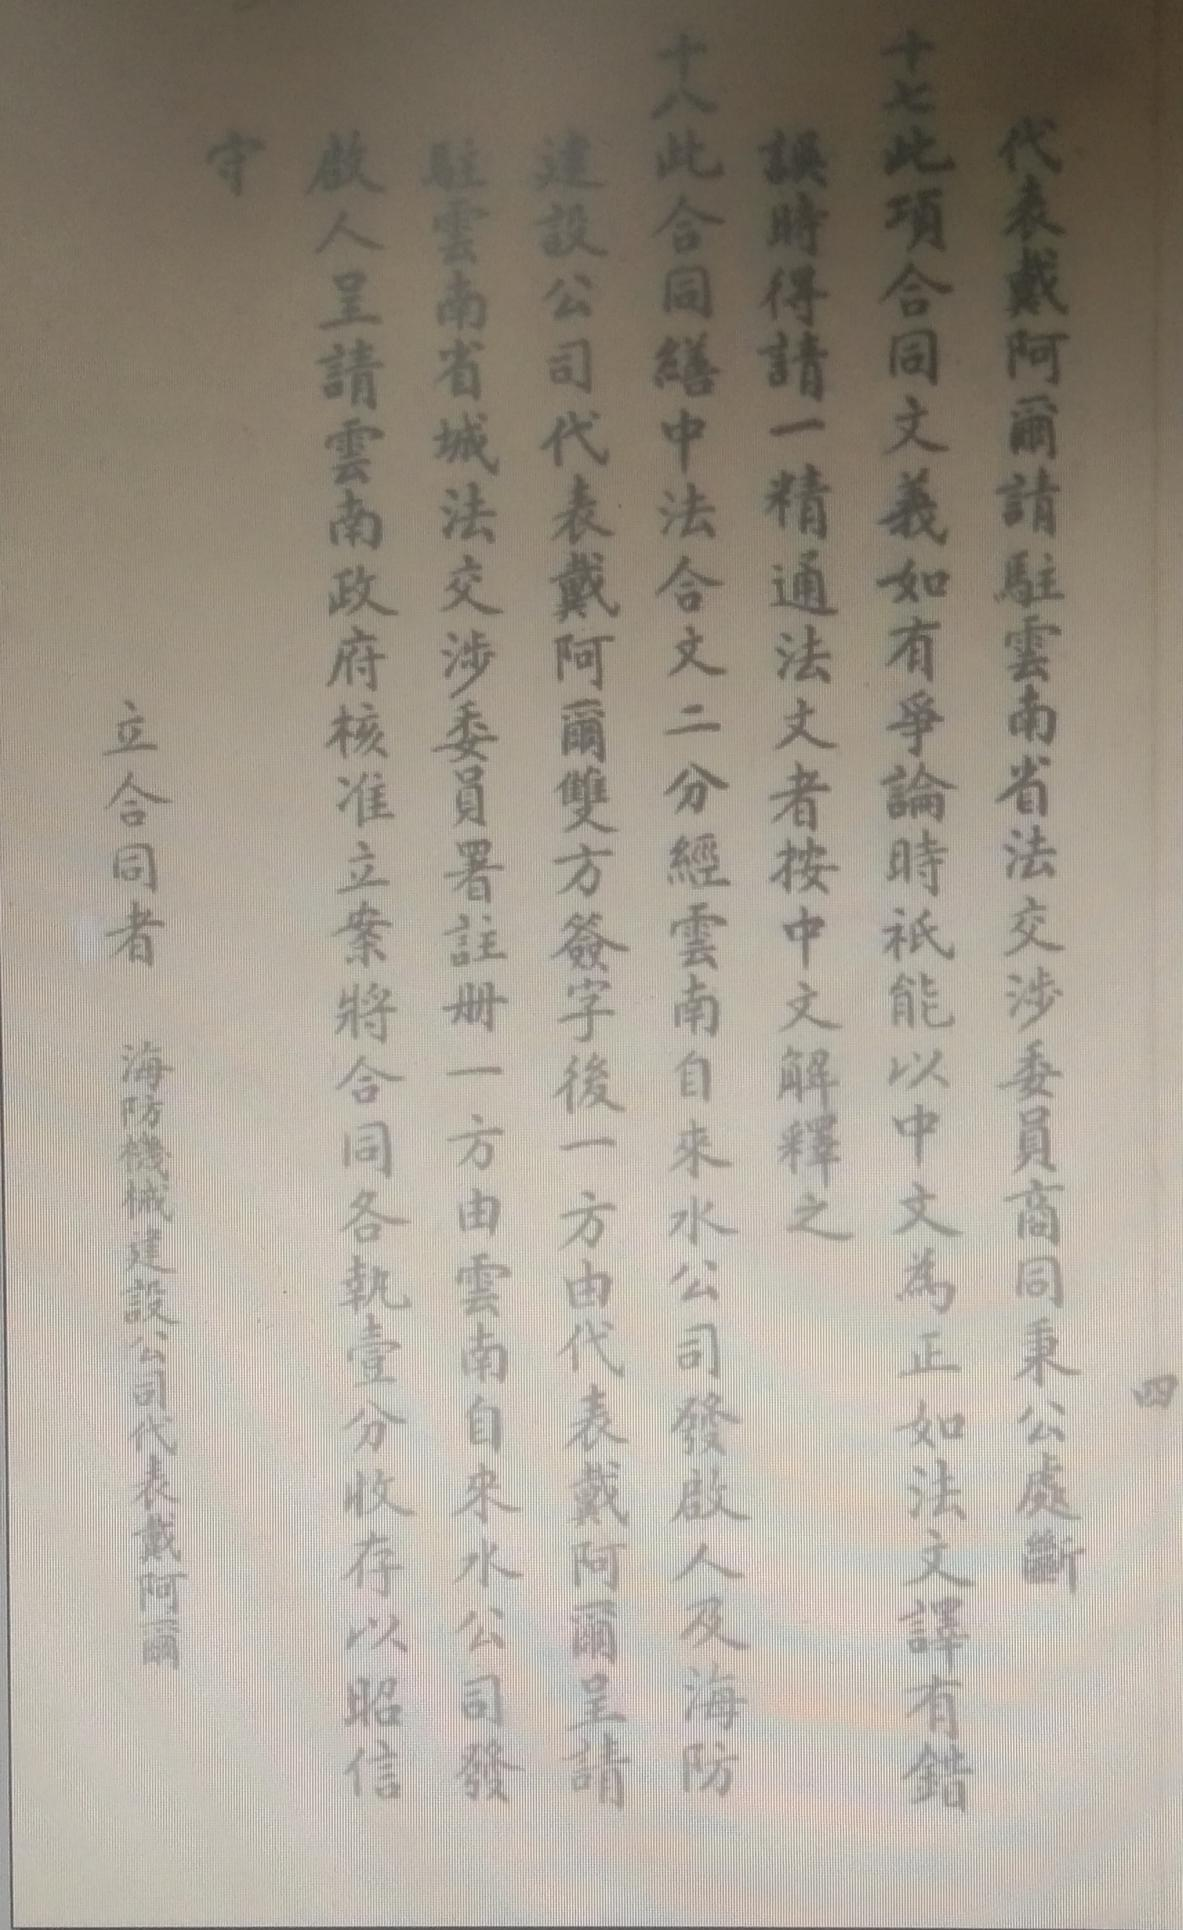 四
代表戴阿爾請駐雲南省法交涉委員商同秉公處斷
十七此項合同文義如有爭論時祇能以中文為正如法文譯有錯
誤時得請一精通法文者按中文解釋之
十八此合同繕中法合文二分經雲南自來水公司發啟人及海防
建設公司代表戴阿爾雙方簽字後一方由代表戴阿爾呈請
駐雲南省城法交涉委員署註册一方由雲南自來水公司發
啟人呈請雲南政府核准立案將合同各執壹分收存以昭信
守
立合同者 海防機械建設公司代表戴阿爾